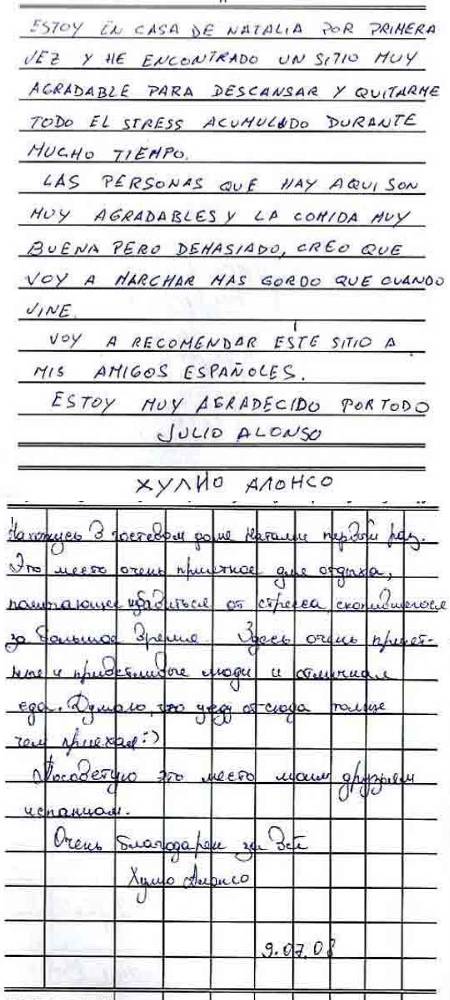 ESTOY EN CASA DE NATALIA POR PRIMERA
VEZ Y HE ENCONTRADO UN SITIO MUY
AGRADABLE PARA DESCANSAR Y QUITARME
TODO EL STRESS ACUMULADO DURANTE
MUCHO TIEMPO.
LAS PERSONAS QUE HAY AQUI SON
MUY AGRADABLES Y LA COMIDA MUY
BUENA PERO DEMASIADO, CREO QUE
VOY A MARCHAR MAS GORDO QUE CUANDO
VINE.
VOY A RECOMENDAR ESTE SITIO A
MIS AMIGOS ESPAÑOLES.
ESTOY MUY AGRADECIDO POR TODO
JULIO ALONSO
ХУЛИО АЛОНСО
Нахожусь в гостевом доме Натальи первый раз.
Это место очень приятное для отдыха,
помогающее избавиться от стресса скопившегося
за большое время. Здесь очень прият-
ные и приветливые люди и отличная
еда. Думаю, что уеду отсюда толще
чем приехал :)
Посоветую это место моим друзьям
испанцам.
Очень благодарен за всё
Хулио Алонсо
9.07.08